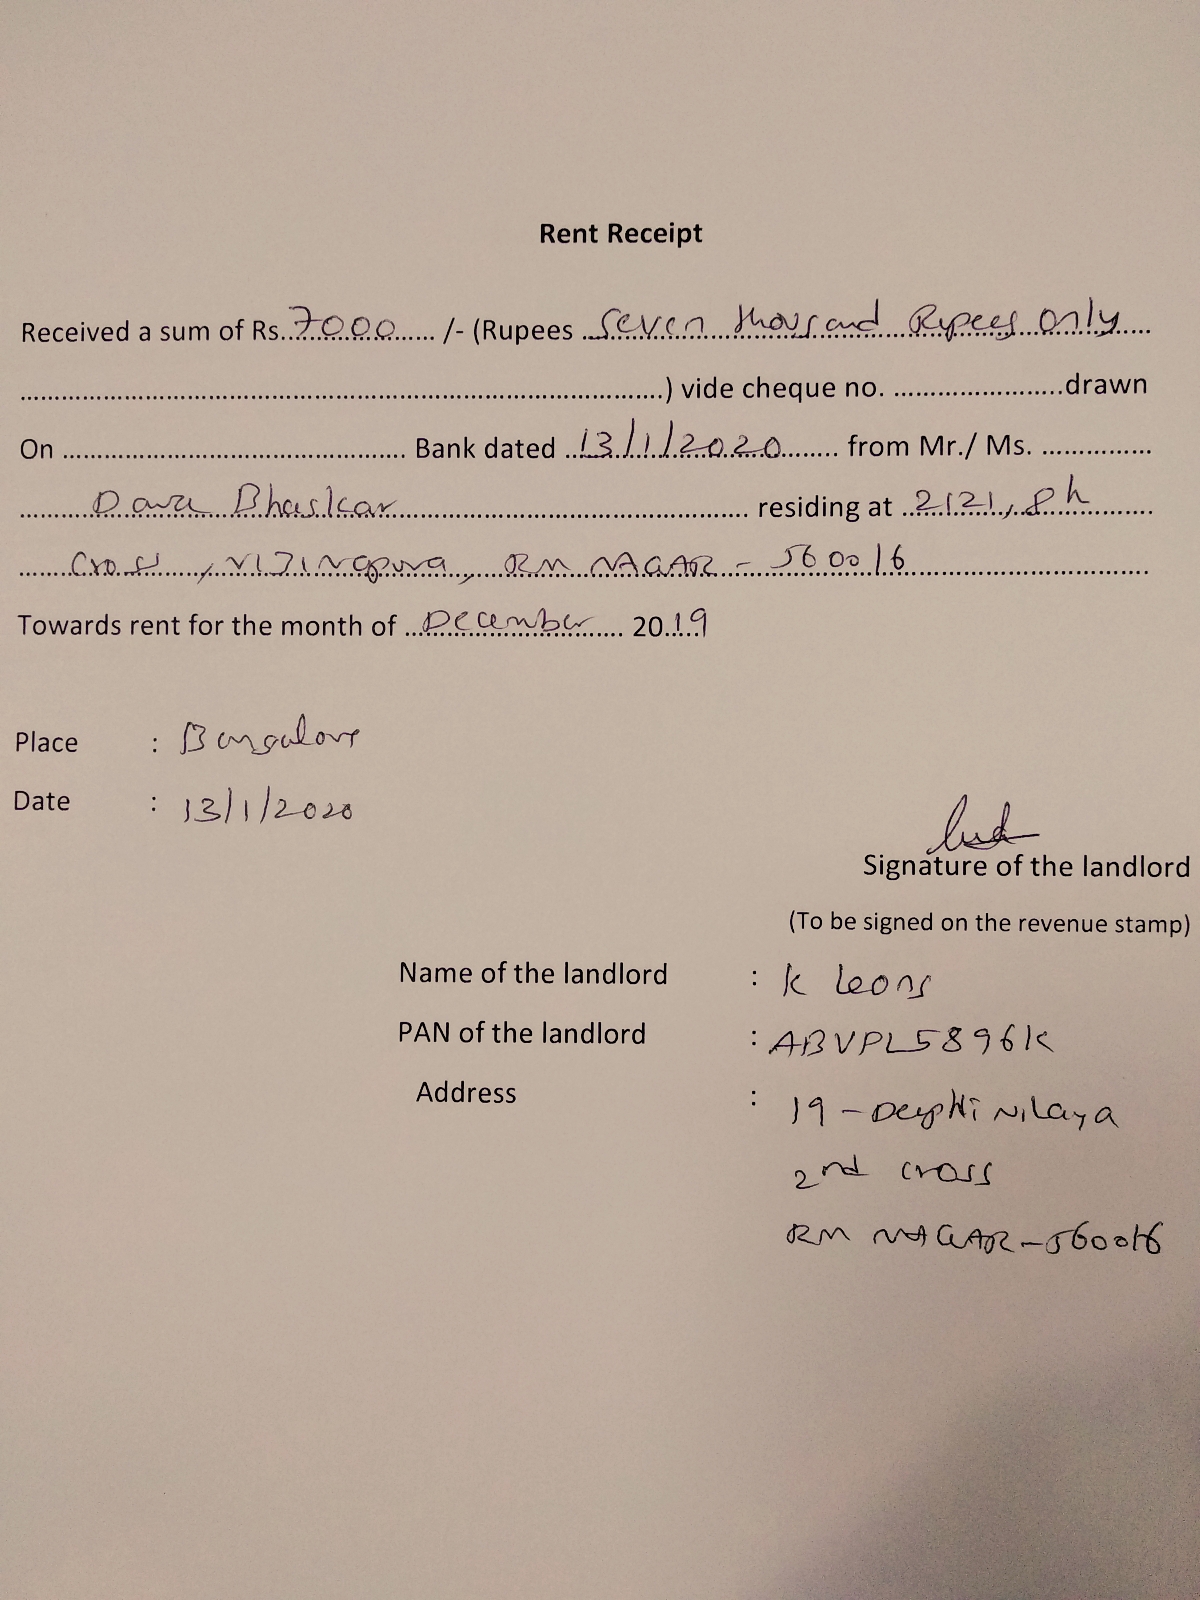 Rent Receipt
Received a sum of Rs. 7000 /- (Rupees Seven thousand Rupees only
) vide cheque no. drawn
On Bank dated 13/1/2020 from Mr./ Ms.
Bhaskar residing at 2121, 8h
Cross, VIJINapura, RM NAGAR - 560016
Towards rent for the month of December 2019
Place : Bangalore
Date : 13/1/2020
Signature of the landlord
(To be signed on the revenue stamp)
Name of the landlord : K Leons
PAN of the landlord : ABVPL5896K
Address : 19 - Nilaya
2nd cross
RM NAGAR - 560016